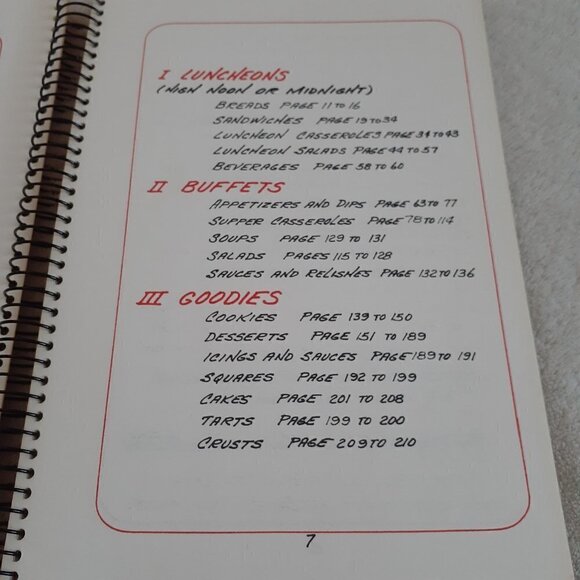 I LUNCHEONS
(HIGH NOON OR MIDNIGHT)
BREADS PAGE 11 TO 16
SANDWICHES PAGE 19 TO 34
LUNCHEON CASSEROLES PAGE 34 TO 43
LUNCHEON SALADS PAGE 44 TO 57
BEVERAGES PAGE 58 TO 60
II BUFFETS
APPETIZERS AND DIPS PAGE 63 TO 77
SUPPER CASSEROLES PAGE 78 TO 114
SOUPS PAGE 129 TO 131
SALADS PAGES 115 TO 128
SAUCES AND RELISHES PAGE 132 TO 136
III GOODIES
COOKIES PAGE 139 TO 150
DESSERTS PAGE 151 TO 189
ICINGS AND SAUCES PAGE 189 TO 191
SQUARES PAGE 192 TO 199
CAKES PAGE 201 TO 208
TARTS PAGE 199 TO 200
CRUSTS PAGE 209 TO 210
7